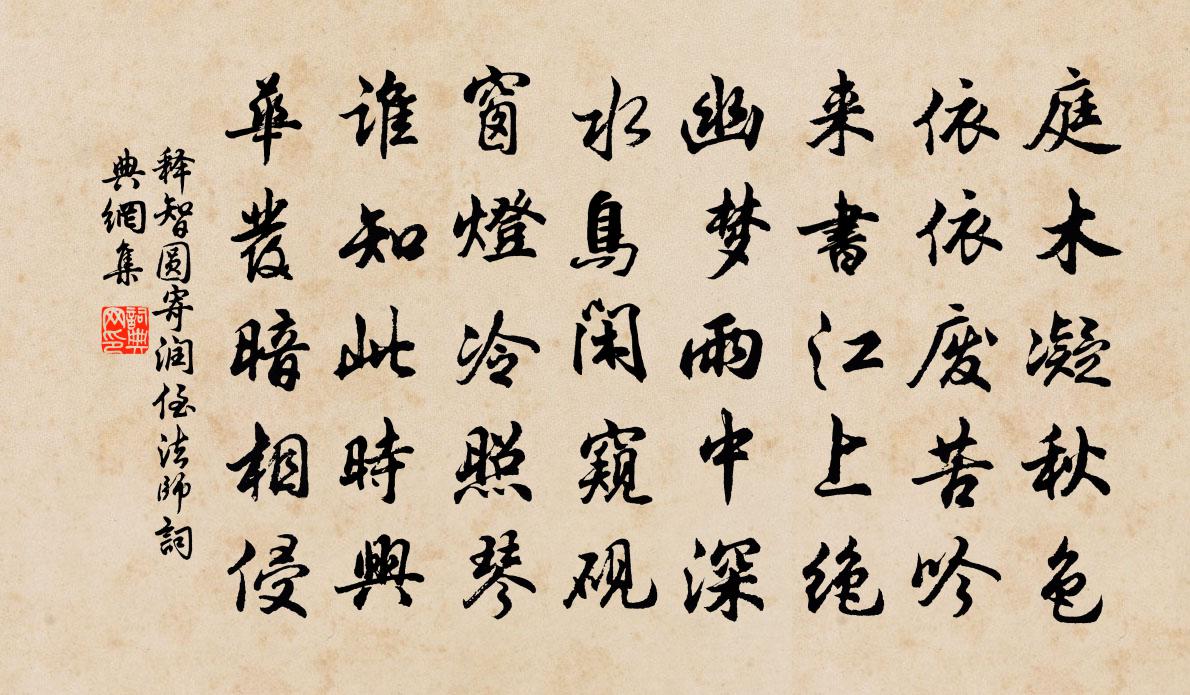 庭木凝秋色
依依废苦吟
来書江上绝
幽梦雨中深
水鳥闲窺砚
窗燈冷照琴
谁知此時興
華发暗相侵
释智圆寄润侄法師詞
典網集
詞典
网印